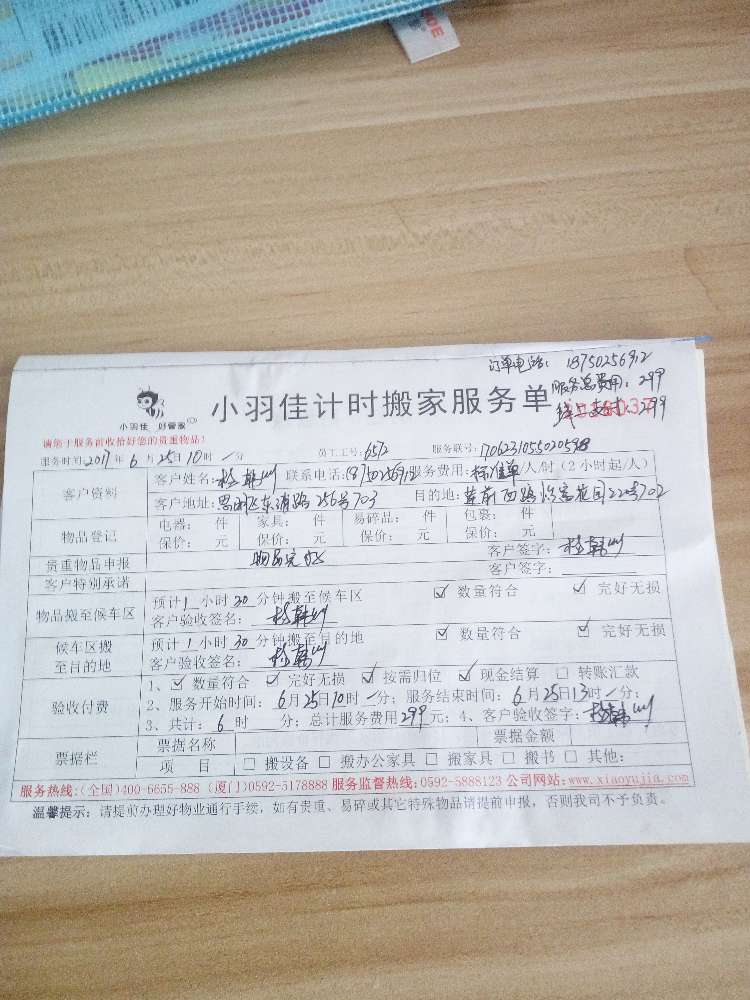 订单电话：18750256912
服务总费用：299
线上支付：299
小羽佳 好管家
小羽佳计时搬家服务单
请您于服务前收拾好您的贵重物品！
服务时间：2017年6月25日10时一分 员工工号：6572 服务联号：
客户资料
客户姓名： 联系电话：18750256912 服务费用：标准单/人/时（2小时起/人）
客户地址：思明区东浦路256号703 目的地：
物品登记
电器： 件 家具： 件 易碎品： 件 包裹： 件
保价： 元 保价： 元 保价： 元 保价： 元
贵重物品申报 物品完好 客户签字：
客户特别承诺 客户签字：
物品搬至候车区
预计1小时30分钟搬至候车区 ☑ 数量符合 ☑ 完好无损
客户验收签名：
候车区搬至目的地
预计1小时30分钟搬至目的地 ☑ 数量符合 ☑ 完好无损
客户验收签名：
验收付费
1、☑ 数量符合 ☑ 完好无损 ☑ 按需归位 ☑ 现金结算 □ 转账汇款
2、服务开始时间：6月25日10时一分；服务结束时间：6月25日13时一分；
3、共计：6时 分；总计服务费用299元；4、客户验收签字：
票据栏
票据名称 票据金额
项 目 □ 搬设备 □ 搬办公家具 □ 搬家具 □ 搬书 □ 其他：
服务热线：(全国)400-6655-888 (厦门)0592-5178888 服务监督热线：0592-5888123 公司网站：www.xiaoyujia.com
温馨提示：请提前办理好物业通行手续，如有贵重、易碎或其它特殊物品请提前申报，否则我司不予负责。